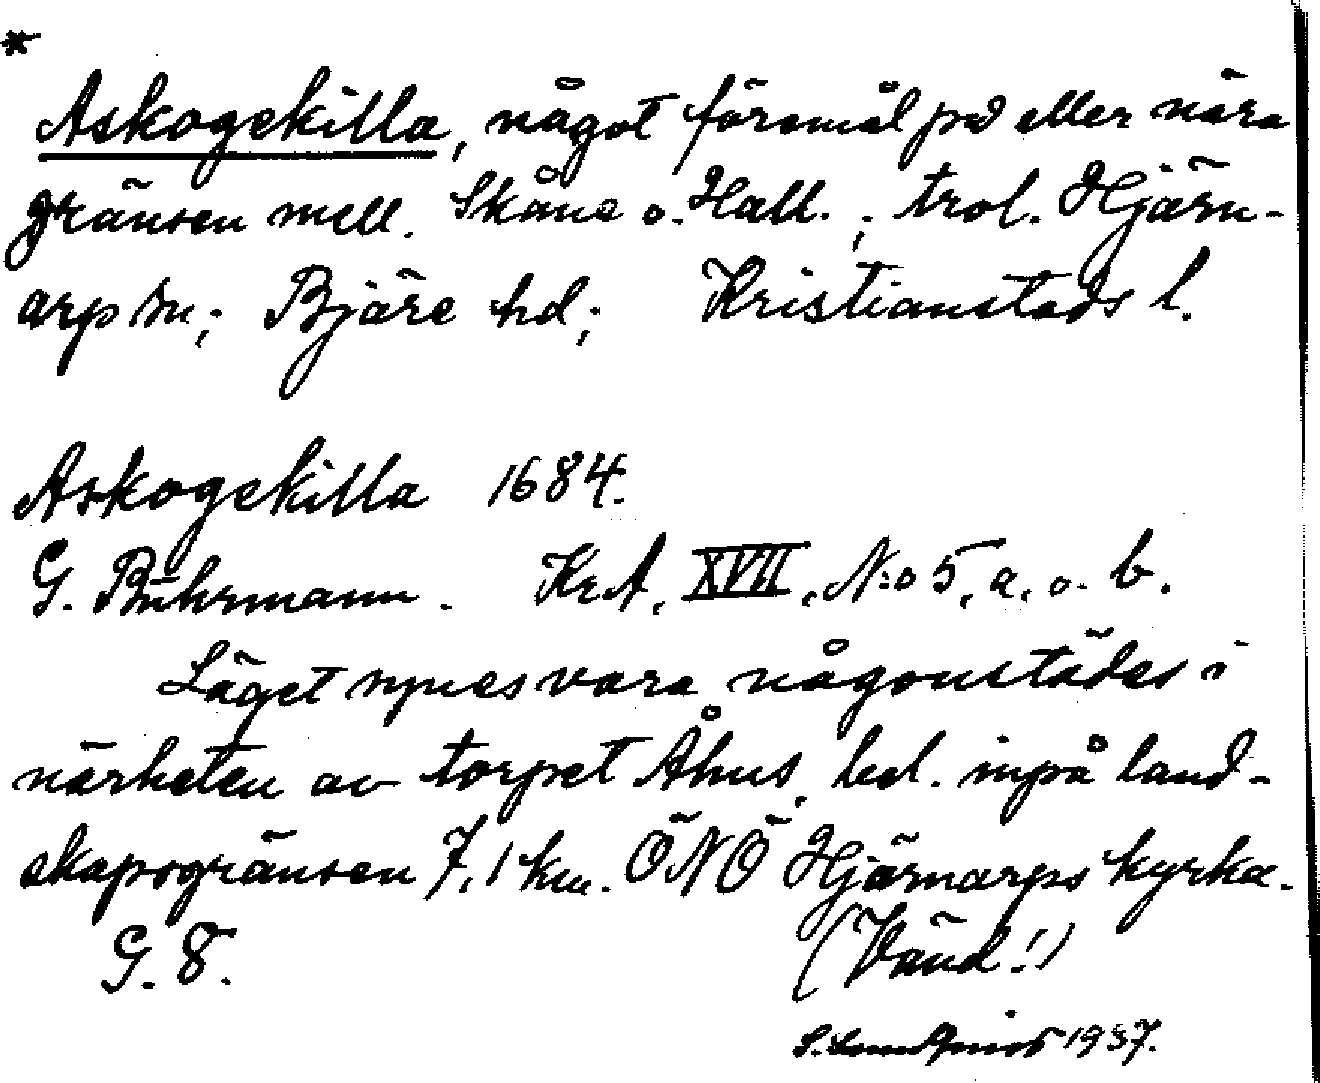 *
Askogekilla, något föremål på eller nära
gränsen mell. Skåne o. Hall.; trol. Hjärn-
arp sn; Bjäre hd; Kristianstads l.
Askogekilla 1684.
G. Buhrmann. KrA, XVII, N:o 5, a. o. b.
Läget synes vara någonstädes i
närheten av torpet Åhus, bel. inpå land-
skapsgränsen 7,1 km. ÖNÖ Hjärnarps kyrka.
G. 8.
(Vänd!)
1937.